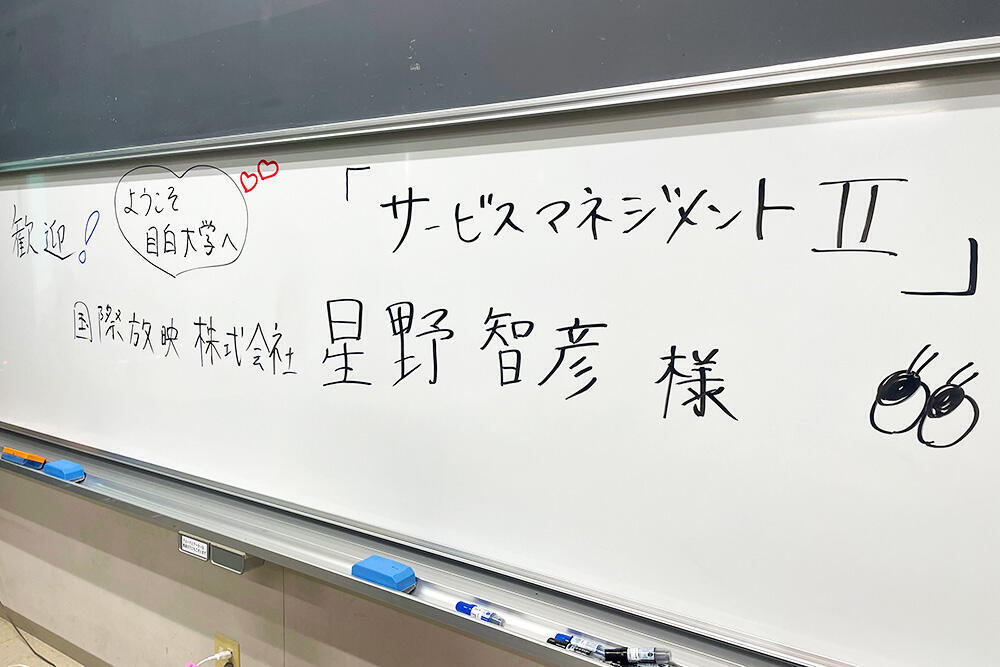 歓迎!
ようこそ
目白大学へ
「サービスマネジメントⅡ」
国際放映株式会社 星野智彦 様